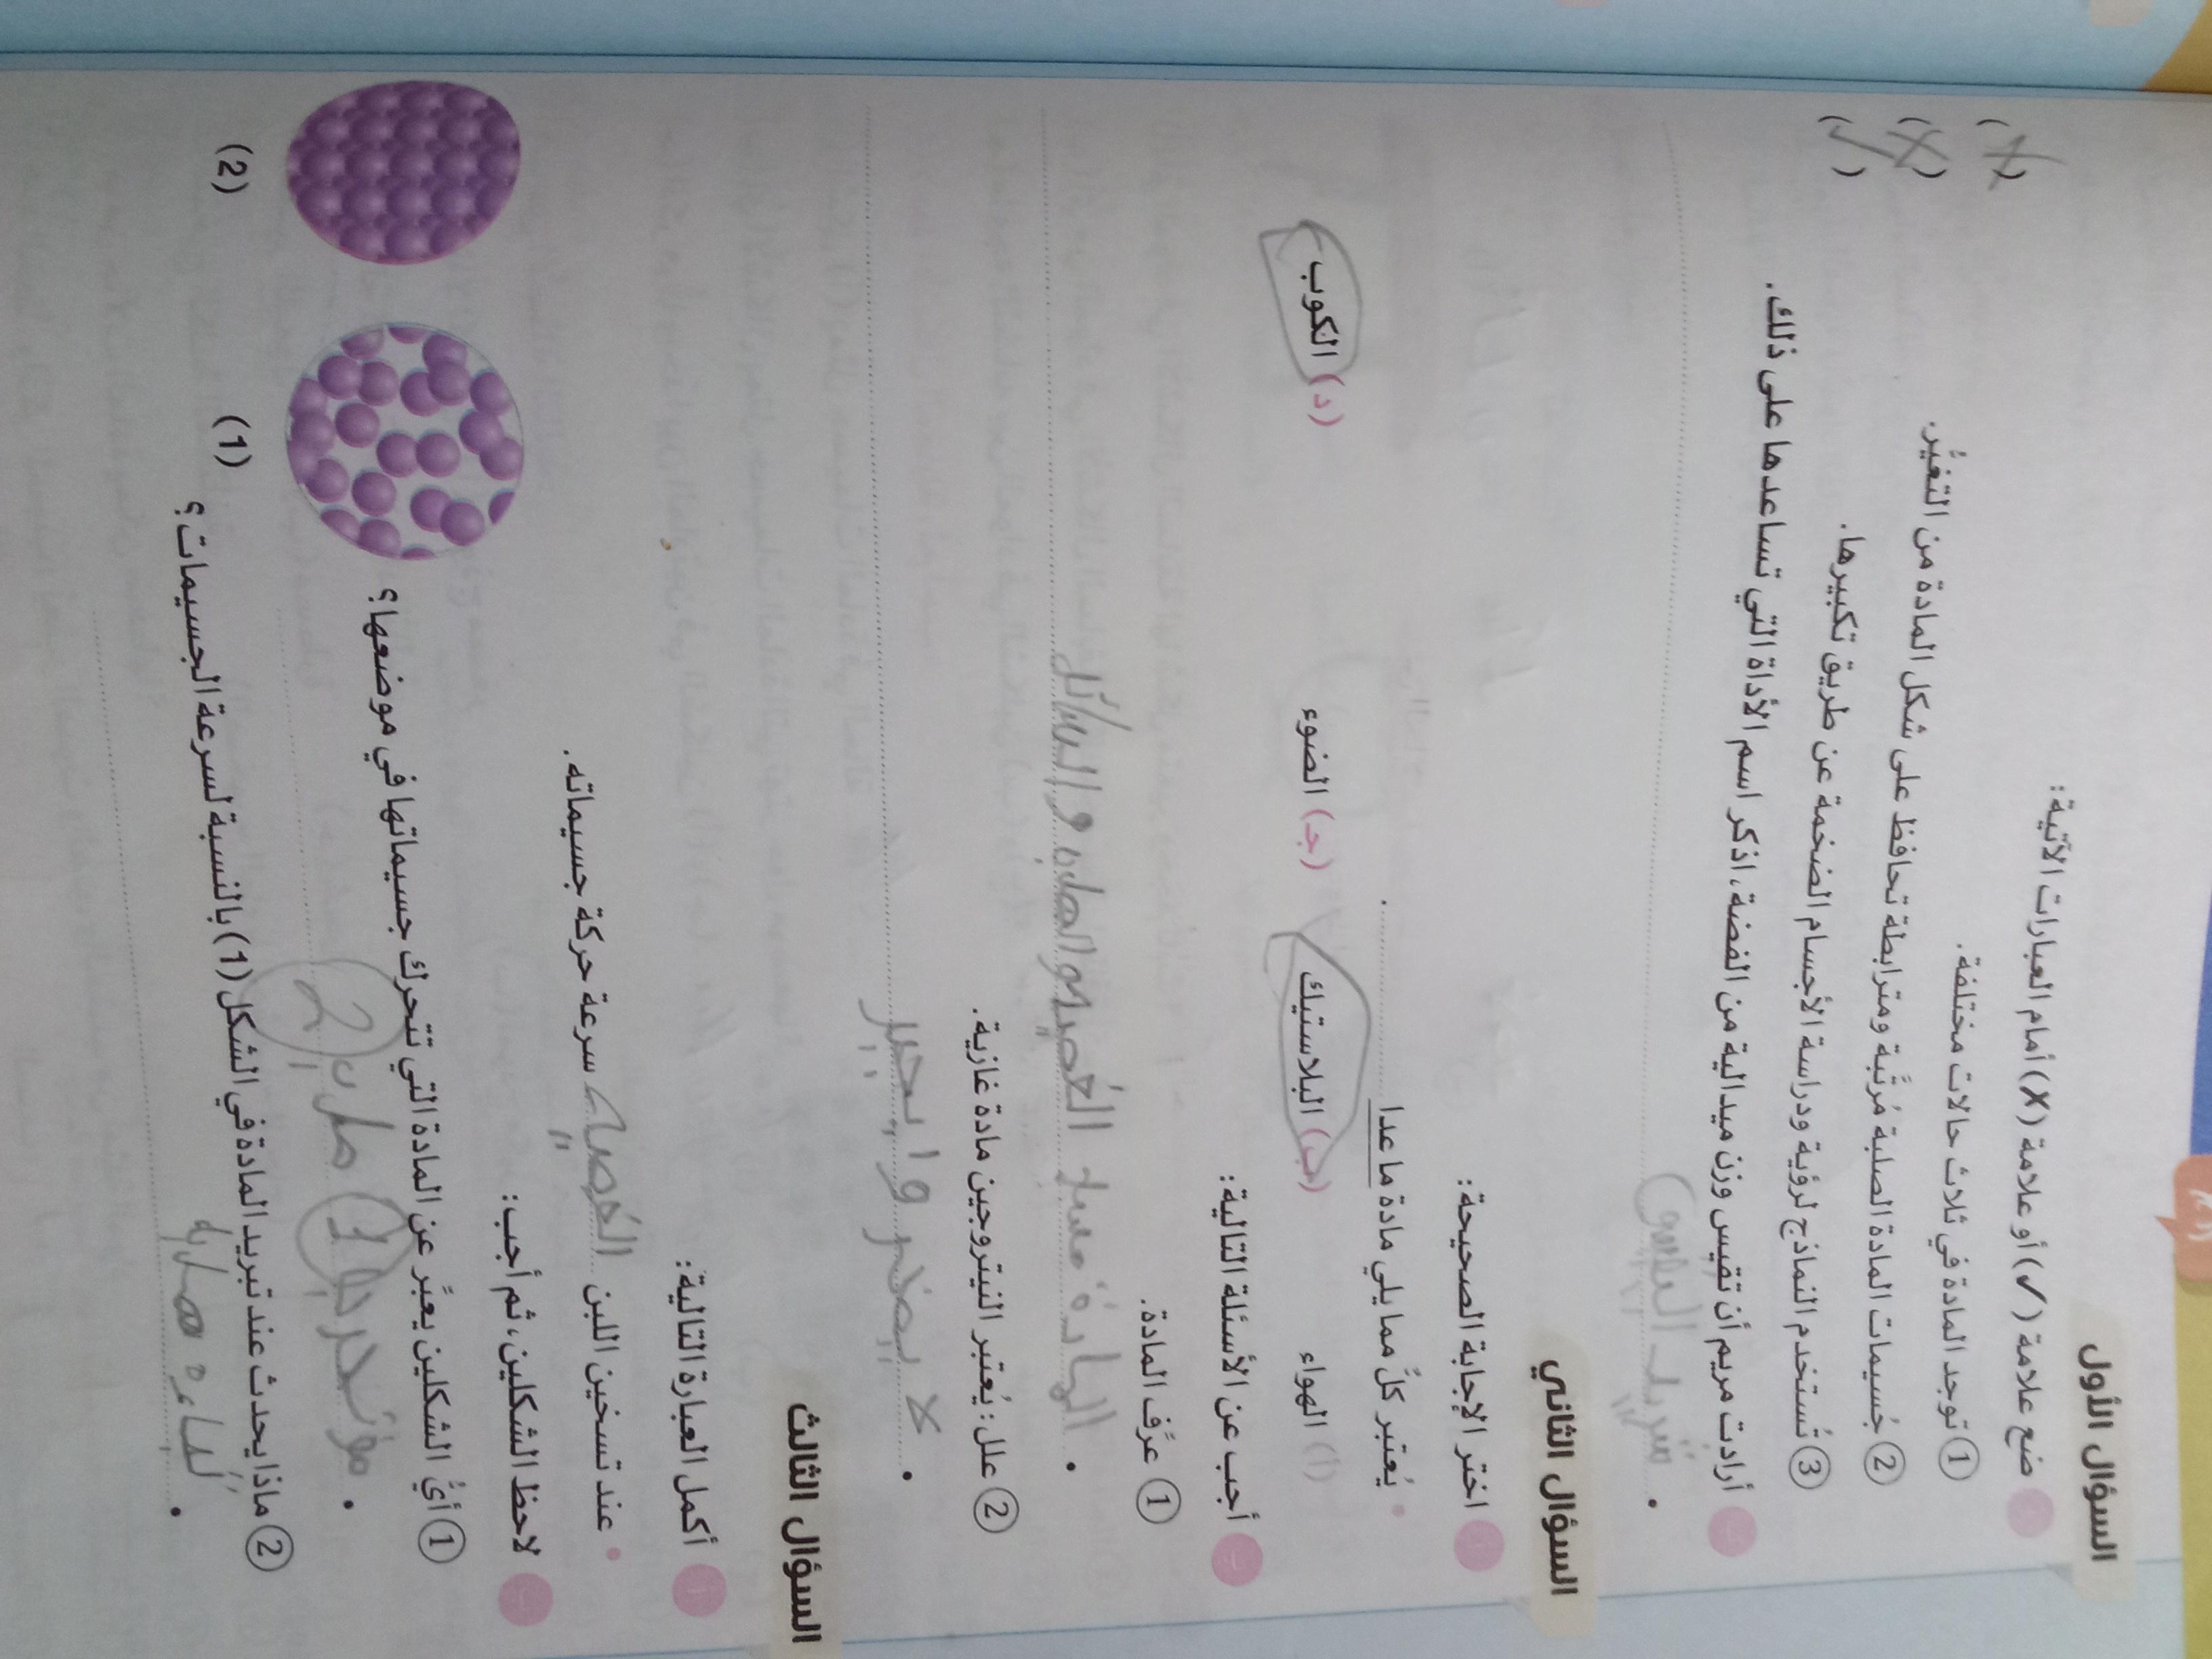 السؤال الأول
ضع علامة (✓) أو علامة (X) أمام العبارات الآتية:
① توجد المادة في ثلاث حالات مختلفة. (X)
② جُسيمات المادة الصلبة مُرتَّبة ومترابطة تحافظ على شكل المادة من التغيُّر. (X)
③ تُستخدم النماذج لرؤية ودراسة الأجسام الضخمة عن طريق تكبيرها. (✓)
ب أرادت مريم أن تقيس وزن ميدالية من الفضة، اذكر اسم الأداة التي تساعدها على ذلك.
السؤال الثاني
أ اختر الإجابة الصحيحة:
يُعتبر كلٌّ مما يلي مادة ما عدا ........
(أ) الهواء (ب) البلاستيك (جـ) الضوء (د) الكوب
ب أجب عن الأسئلة التالية:
① عرِّف المادة.
المادة
② علل: يُعتبر النيتروجين مادة غازية.
السؤال الثالث
أ أكمل العبارة التالية:
عند تسخين اللبن سرعة حركة جسيماته.
ب لاحظ الشكلين، ثم أجب:
① أيُّ الشكلين يعبِّر عن المادة التي تتحرك جسيماتها في موضعها؟
1 2
② ماذا يحدث عند تبريد المادة في الشكل (1) بالنسبة لسرعة الجسيمات؟
(1) (2)